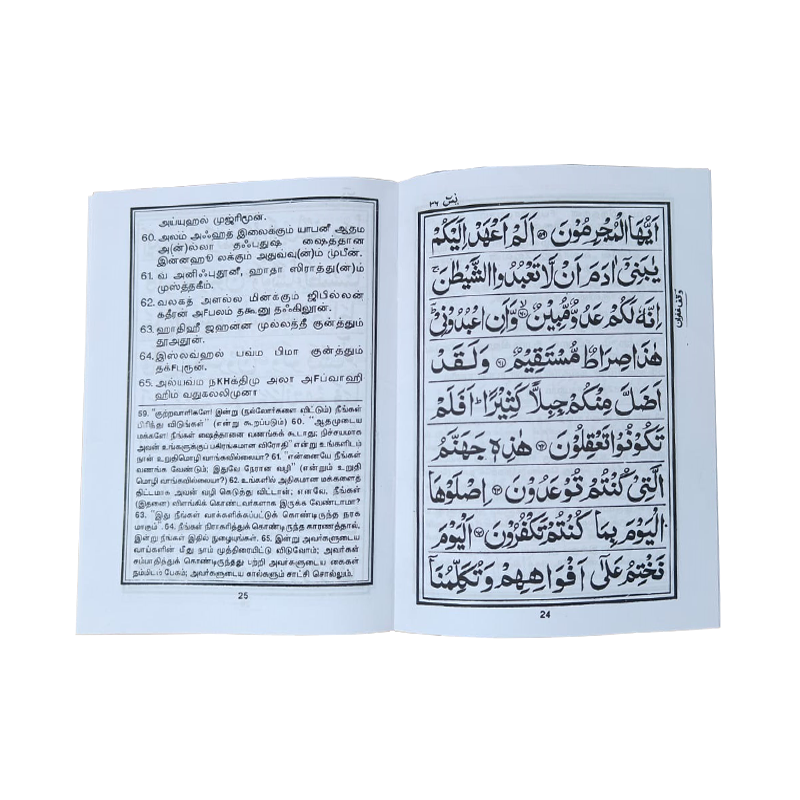 يٰسٓ ٣٦
اَيُّهَا الْمُجْرِمُوْنَ ﴿۵۹﴾ اَلَمْ اَعْهَدْ اِلَيْكُمْ
يٰبَنِيْٓ اٰدَمَ اَنْ لَّا تَعْبُدُوا الشَّيْطٰنَ ۚ
اِنَّهٗ لَكُمْ عَدُوٌّ مُّبِيْنٌ ﴿۶۰﴾ وَّاَنِ اعْبُدُوْنِيْ ؕ
هٰذَا صِرَاطٌ مُّسْتَقِيْمٌ ﴿۶۱﴾ وَلَقَدْ
اَضَلَّ مِنْكُمْ جِبِلًّا كَثِيْرًا ؕ اَفَلَمْ
تَكُوْنُوْا تَعْقِلُوْنَ ﴿۶۲﴾ هٰذِهٖ جَهَنَّمُ
الَّتِيْ كُنْتُمْ تُوْعَدُوْنَ ﴿۶۳﴾ اِصْلَوْهَا
الْيَوْمَ بِمَا كُنْتُمْ تَكْفُرُوْنَ ﴿۶۴﴾ اَلْيَوْمَ
نَخْتِمُ عَلٰٓى اَفْوَاهِهِمْ وَتُكَلِّمُنَآ
وقف غفران
24
அய்யுஹல் முஜ்ரிமூன்.
60. அலம் அஃஹத் இலைக்கும் யாபனீ ஆதம
அ(ன்)ல்லா தஃபுதுஷ் ஷைத்தான
இன்னஹூ லக்கும் அதுவ்வு(ன்)ம் முபீன்.
61. வ அனிஃபுதூனீ, ஹாதா ஸிராத்து(ன்)ம்
முஸ்த்தகீம்.
62. வலகத் அளல்ல மினக்கும் ஜிபில்லன்
கதீரன் அFபலம் தகூனு தஃகிலூன்.
63. ஹாதிஹீ ஜஹன்ன முல்லத்தீ குன்த்தும்
தூஅதூன்.
64. இஸ்லவ்ஹல் யவ்ம பிமா குன்த்தும்
தக்Fபுரூன்.
65. அல்யவ்ம நKHக்திமு அலா அFப்வாஹி
ஹிம் வதுகல்லிமுனா
59. "குற்றவாளிகளே! இன்று (நல்லோர்களை விட்டும்) நீங்கள்
பிரிந்து விடுங்கள்" (என்று கூறப்படும்) 60. "ஆதமுடைய
மக்களே! நீங்கள் ஷைத்தானை வணங்கக் கூடாது; நிச்சயமாக
அவன் உங்களுக்குப் பகிரங்கமான விரோதி" என்று உங்களிடம்
நான் உறுதிமொழி வாங்கவில்லையா? 61. "என்னையே நீங்கள்
வணங்க வேண்டும்; இதுவே நேரான வழி" (என்றும் உறுதி
மொழி வாங்கவில்லையா?) 62. உங்களில் அதிகமான மக்களைத்
திட்டமாக அவன் வழி கெடுத்து விட்டான்; எனவே, நீங்கள்
(இதனை) விளங்கிக் கொண்டவர்களாக இருக்க வேண்டாமா?
63. "இது நீங்கள் வாக்களிக்கப்பட்டுக் கொண்டிருந்த நரக
மாகும்". 64. நீங்கள் நிராகரித்துக் கொண்டிருந்த காரணத்தால்,
இன்று நீங்கள் இதில் நுழையுங்கள். 65. இன்று அவர்களுடைய
வாய்களின் மீது நாம் முத்திரையிட்டு விடுவோம்; அவர்கள்
சம்பாதித்துக் கொண்டிருந்தது பற்றி அவர்களுடைய கைகள்
நம்மிடம் பேசும்; அவர்களுடைய கால்களும் சாட்சி சொல்லும்.
25